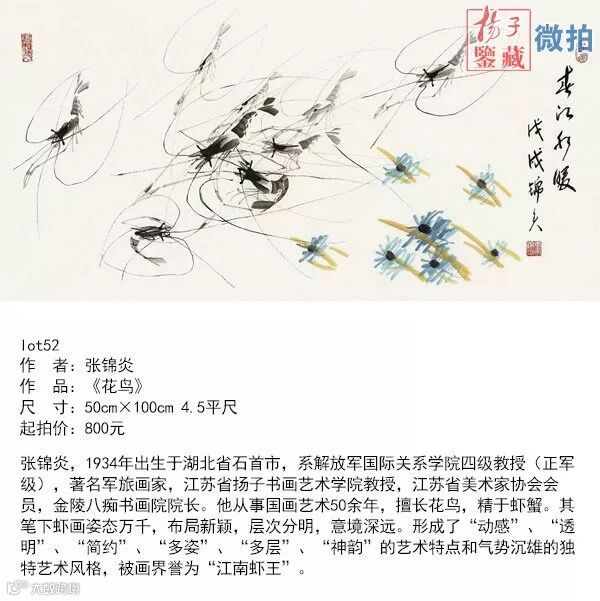 扬子
鉴藏
微拍
春江水暖
戊戌锦炎
lot52
作 者：张锦炎
作 品：《花鸟》
尺 寸：50cm×100cm 4.5平尺
起拍价：800元
张锦炎，1934年出生于湖北省石首市，系解放军国际关系学院四级教授（正军
级），著名军旅画家，江苏省扬子书画艺术学院教授，江苏省美术家协会会
员，金陵八痴书画院院长。他从事国画艺术50余年，擅长花鸟，精于虾蟹。其
笔下虾画姿态万千，布局新颖，层次分明，意境深远。形成了“动感”、“透
明”、“简约”、“多姿”、“多层”、“神韵”的艺术特点和气势沉雄的独
特艺术风格，被画界誉为“江南虾王”。
大威跨境